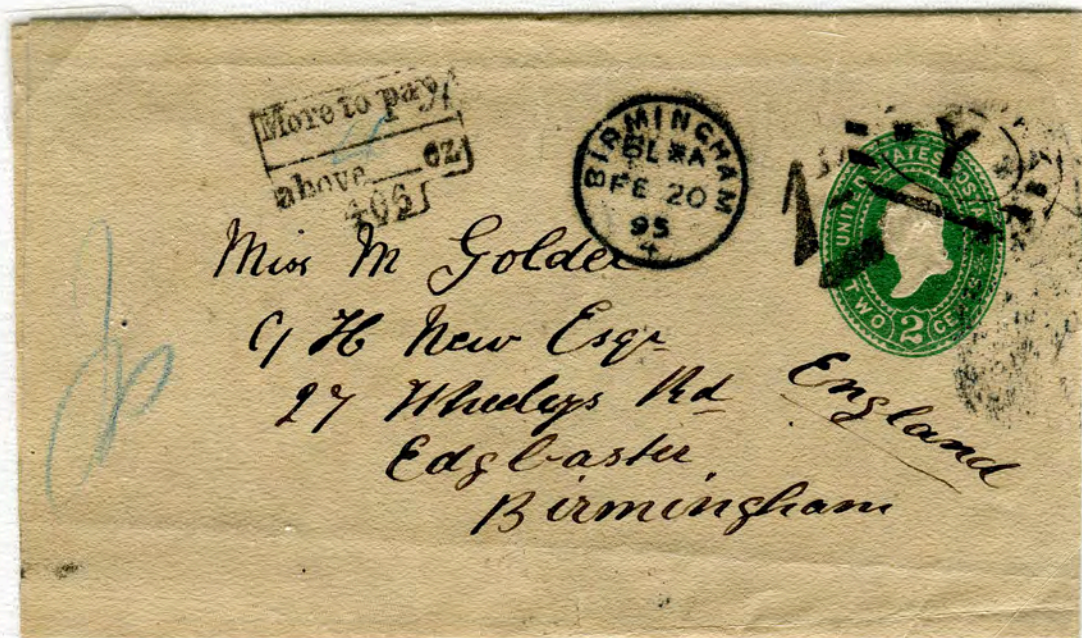 More to pay
above oz
466
BIRMINGHAM
FE 20
95
4
UNITED STATES POSTAGE
TWO 2 CENTS
Miss M Golder
C/ H New Esqr
27 Wheeleys Rd
England
Edgbaston
Birmingham